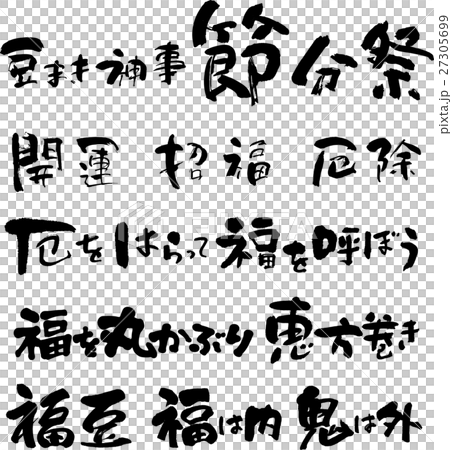 豆まき神事 節分祭
開運 招福 厄除
厄をはらって福を呼ぼう
福を丸かぶり 恵方巻き
福豆 福は内 鬼は外
pixta.jp - 27305699